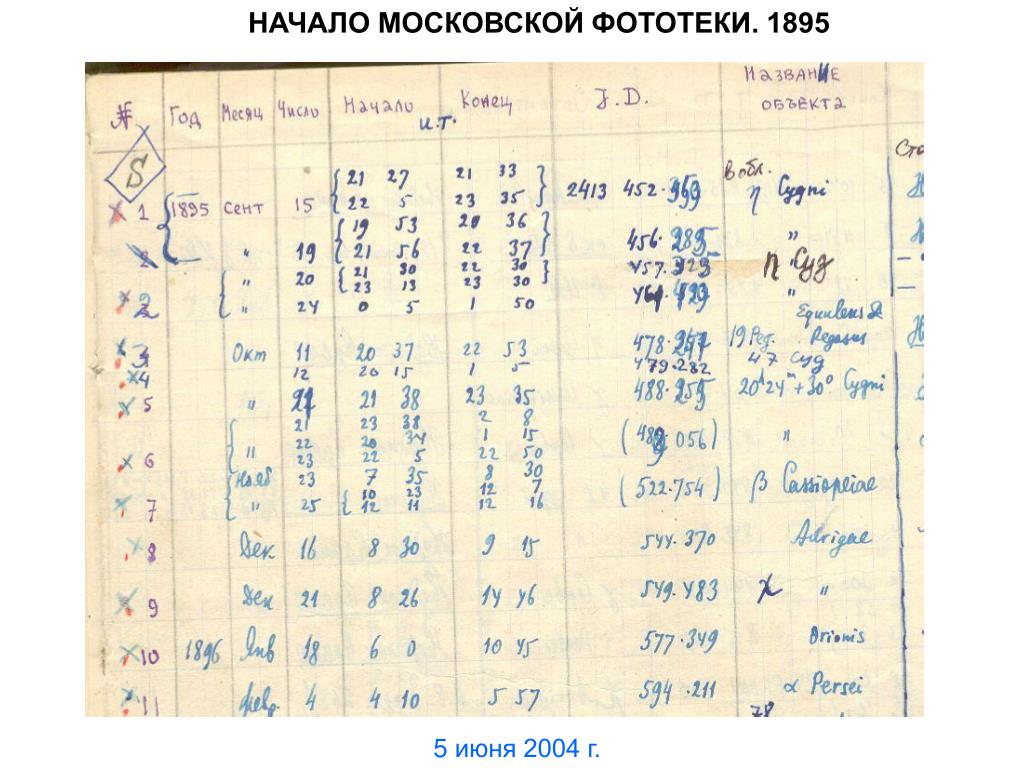 НАЧАЛО МОСКОВСКОЙ ФОТОТЕКИ. 1895
НАЗВАНИЕ
№ Год Месяц Число Начало Конец J.D. ОБЪЕКТА
И.Т.
S
21 27 21 33 в обл.
1 1895 Сент 15 22 5 23 35 2413 452. η Cygni
19 53 20 36
" 19 21 56 22 37 456. 285 "
" 20 21 30 22 30 457. η Cyg
23 13 23 30
2 " 24 0 5 1 50 "
3 Окт 11 20 37 22 53 478. 19 Peg. Pegasus
4 12 20 15 1 5 479.282 47 Cyg
5 " 21 38 23 35 488.255 20h24m+30° Cygni
21 23 38 2 8
" 22 20 34 1 15 056) "
6 23 22 5 22 50
Нояб 23 7 35 8 30
7 " 25 10 23 12 7 (522.754) β Cassiopeiae
12 11 12 16
8 Дек. 16 8 30 9 15 544.370 Aurigae
9 Дек 21 8 26 14 46 549.483 χ "
10 1896 Янв 18 6 0 10 45 577.349 Orionis
11 февр. 4 4 10 5 57 594.211 α Persei
78
5 июня 2004 г.